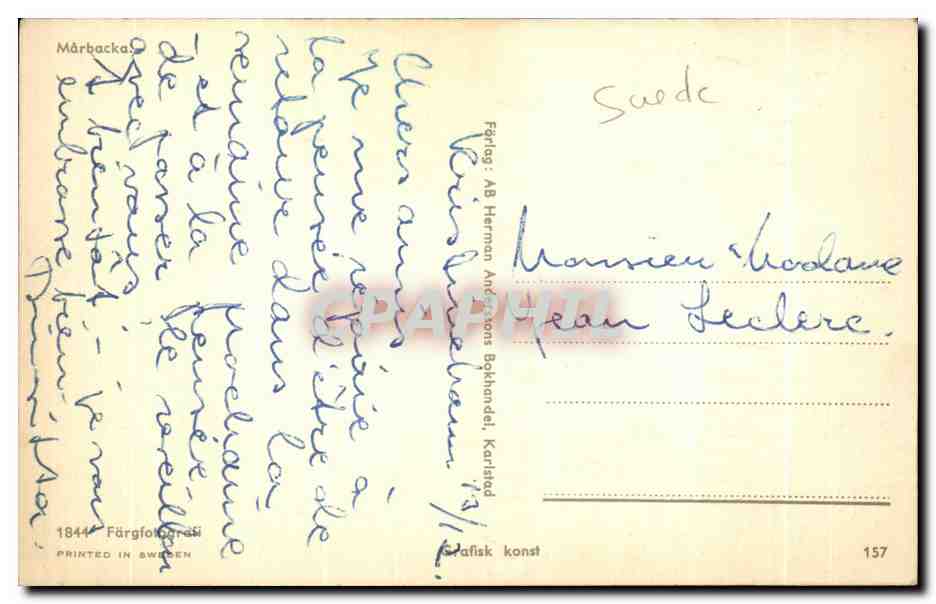 Mårbacka.
Kristinehamn 13/12.
Chers amis
Je me réjouis à
la pensée d'être de
retour dans la
semaine prochaine
et à la pensée
de passer le réveillon
avec vous
A bientôt - je vous
embrasse bien
1844 Färgfotografi
PRINTED IN SWEDEN
Förlag: AB Herman Anderssons Bokhandel, Karlstad
Grafisk konst
157
Suede
Monsieur & Madame
Jean Leclerc.
CPAPHIL